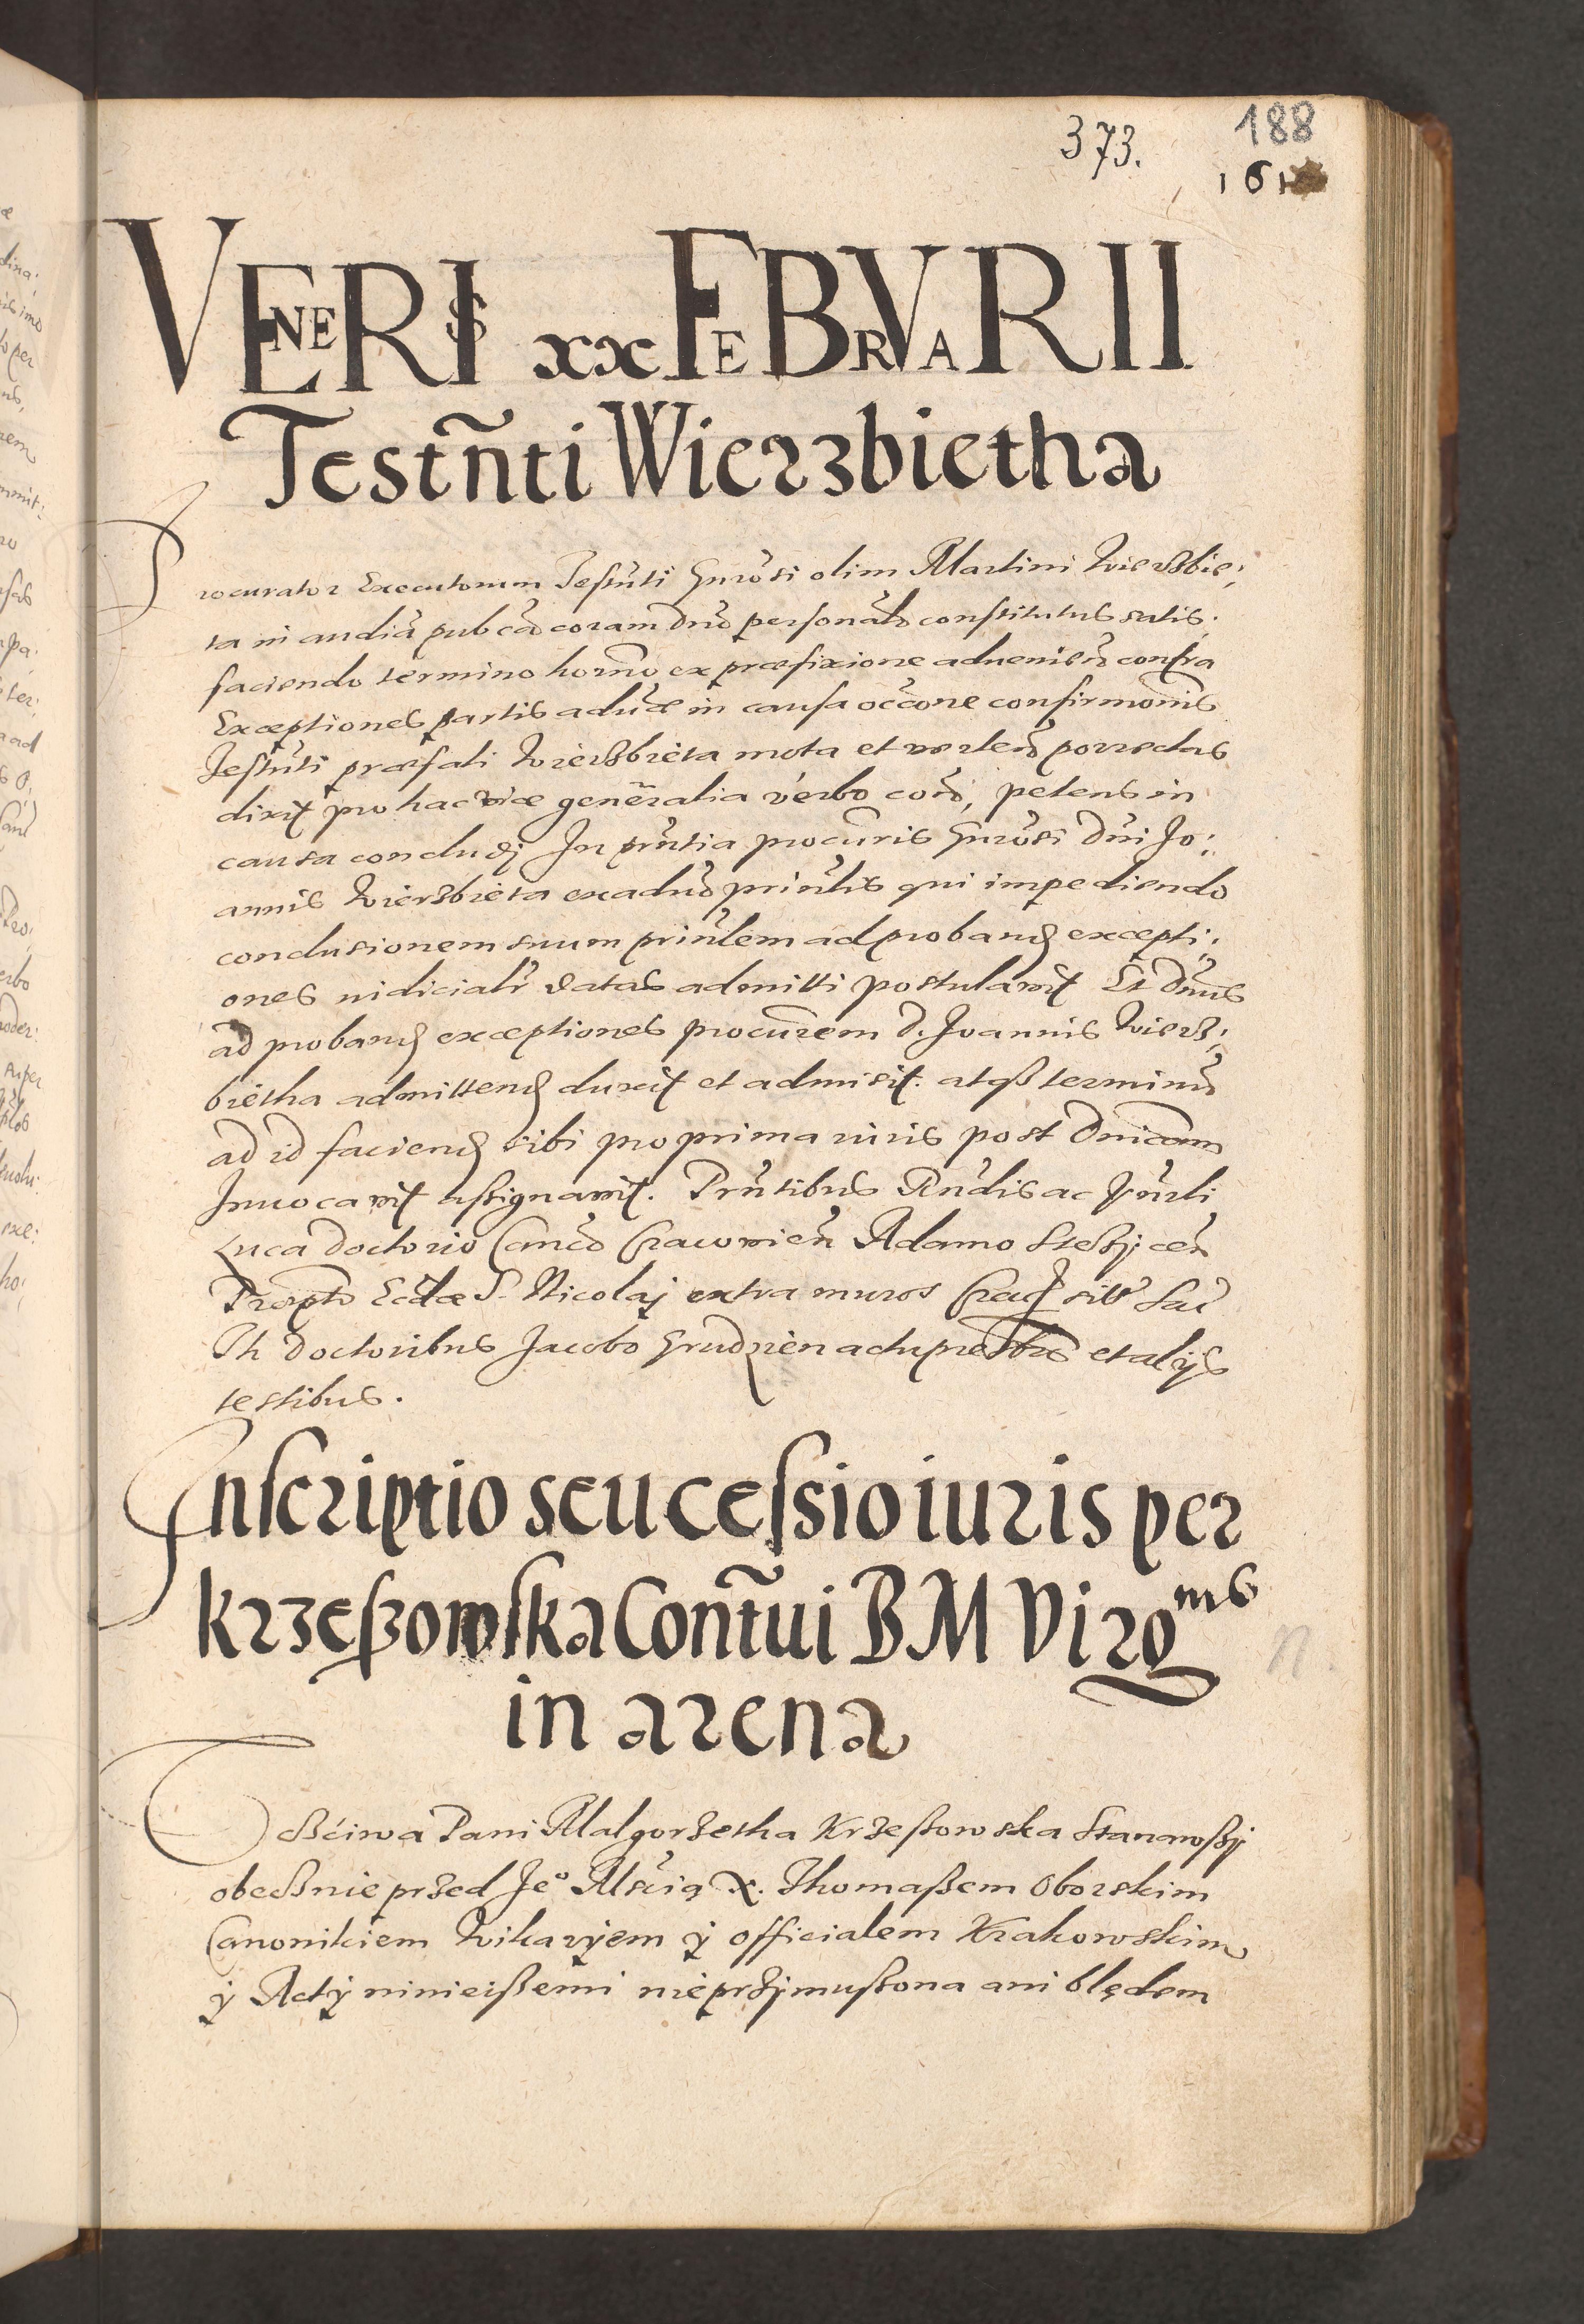 373.
188
161
VENERIS xx FEBRVARII
Testñti Wierzbietha
Procurator Executorum Testñti Gnrosi olim Martini Wierzbie:
ta in audiã pub cãd coram dnõ personalr constitutus satis:
faciendo termino horno ex præfixione adueniẽn contra
Exceptiones partis aduæ in causa occõne confirmõnis
Testñti præfati Wierzbieta mota et verteñ porrectas
dixit pro hac vice geñeralia verbo coñd, petens in
causa concludi In pñtia procuris Gnrosi Dñi Jo:
annis Wierzbieta ex aduõ prinlis qui impediendo
conclusionem suum prinlem ad proband excepti:
ones iudicialr datas admitti postulavit Et Dñus
ad proband exceptiones procurem D. Joannis Wierz:
bietha admittend duxit et admisit. atqß terminũ
ad id faciend sibi pro prima iuris post Dnicam
Inuocavit assignavit. Prñtibus Rndis ac Gnrli
Luca doctorio Cancõ Cracovieñ Adamo
Præpto Eccłæ S. Nicolaj extra muros Crac sitt Sac
Th doctoribus Jacobo Grudzien actuprñtibus et alijs
testibus.
Inscriptio seu cessio iuris per
Krzeszowska Conñtui B M Virgnis
in arena
Vcżciwa Pani Malgorzetha Krzeßowska Stanawßy
obecżnie przed Je° Mścią X. Thomaßem Oborskim
Canonikiem Wikaryem y officialem Krakowskim
y Acty ninieißemi nieprzymußona ani blędem